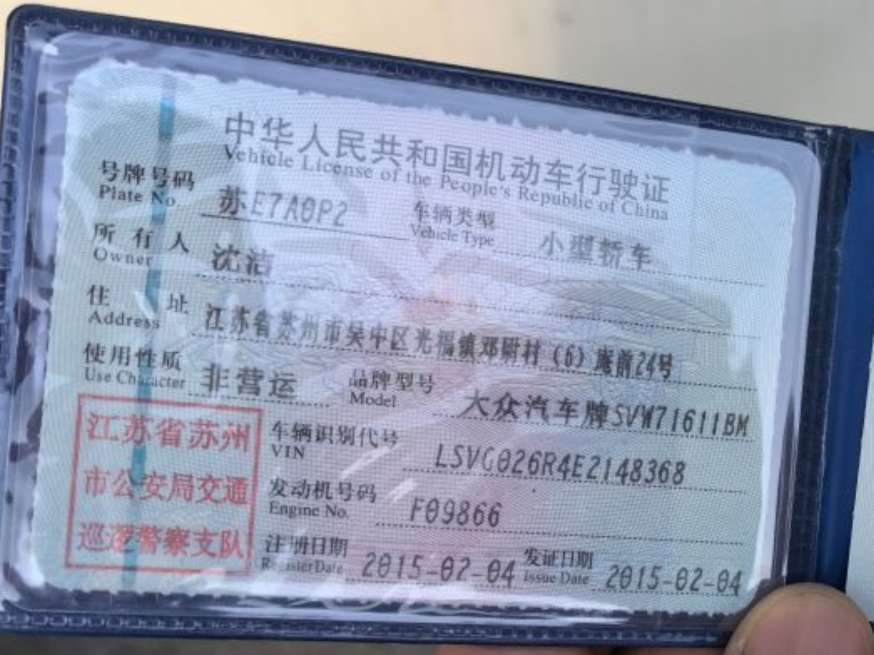 中华人民共和国机动车行驶证
Vehicle License of the People's Republic of China
号牌号码 苏E7A0P2 车辆类型 小型轿车
Plate No. Vehicle Type
所有人 沈洁
Owner
住址 江苏省苏州市吴中区光福镇邓尉村(6)庵前24号
Address
使用性质 非营运 品牌型号 大众汽车牌SVW71611BM
Use Character Model
江苏省苏州
市公安局交通
巡逻警察支队
车辆识别代号 LSVG026R4E2148368
VIN
发动机号码 F09866
Engine No.
注册日期 2015-02-04 发证日期 2015-02-04
Register Date Issue Date